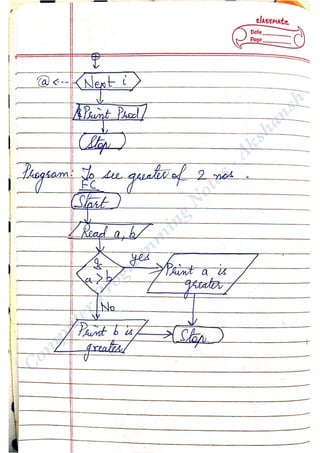 classmate
Date
Page
@ <-- Next i
Print Prod
Stop
Program: To see greater of 2 nos.
FC
Start
Read a, b
Is a > b
yes
Print a is greater
No
Print b is greater
Stop
Computer Programming Notes - Akshansh